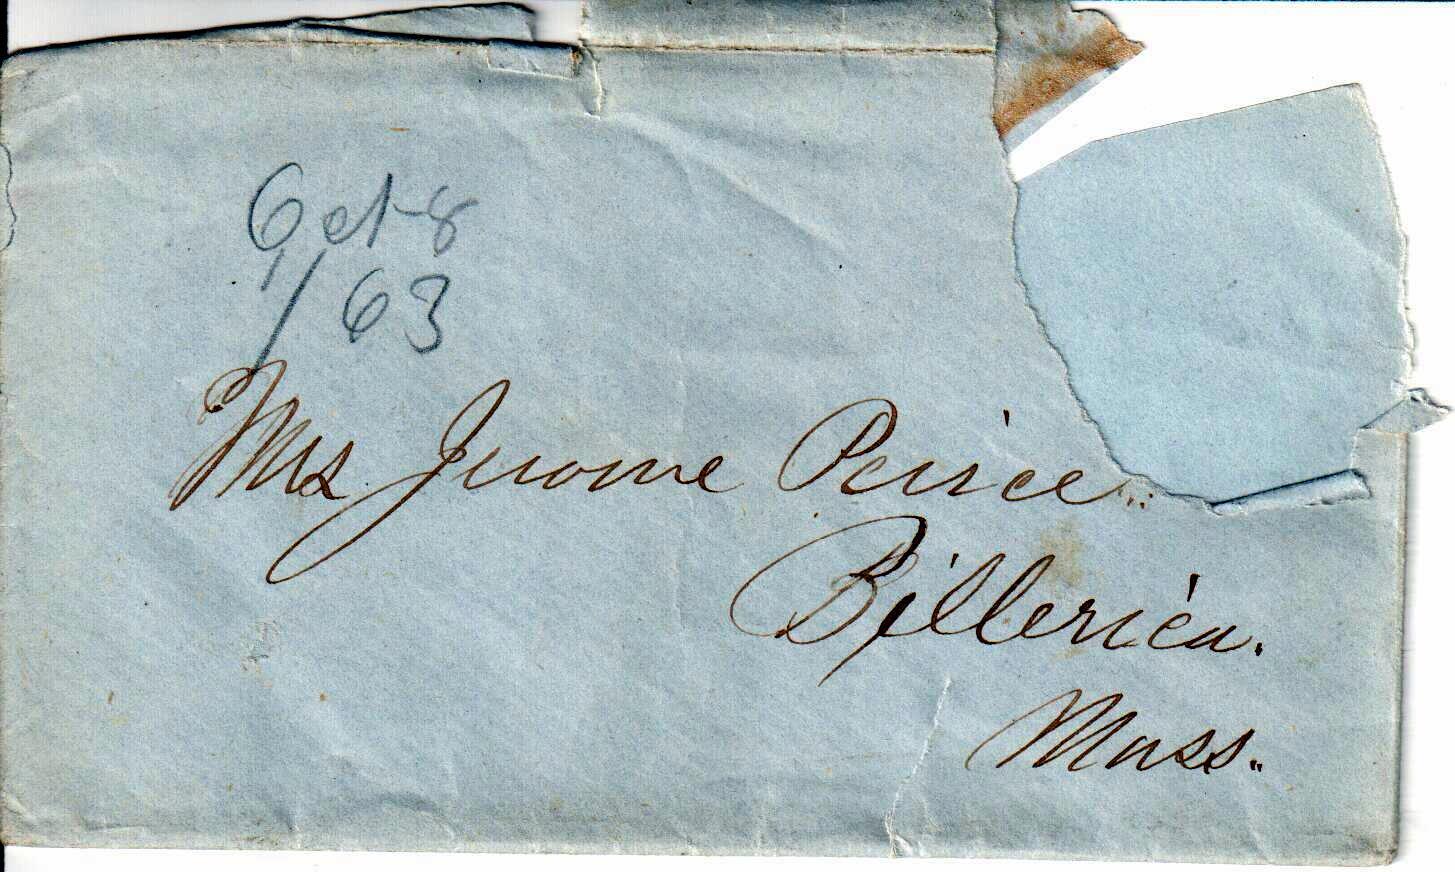 Oct 8
/ 63
Mrs Jerome Peirce
Billerica.
Mass.